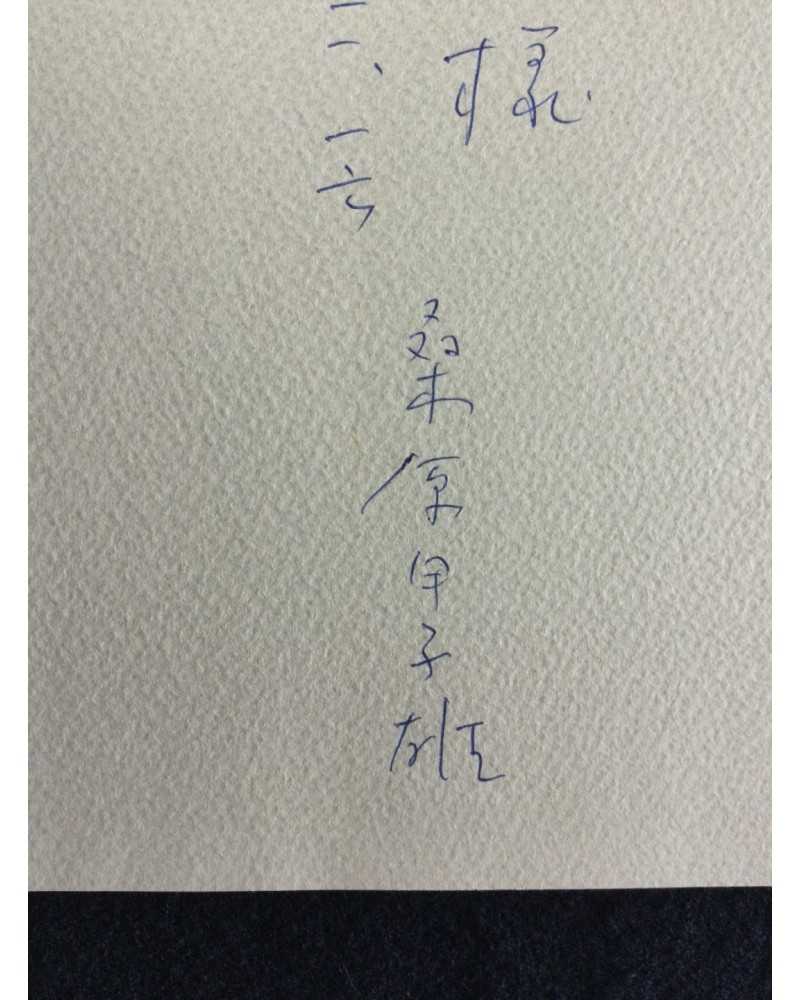 様
二、一六
桑原甲子雄